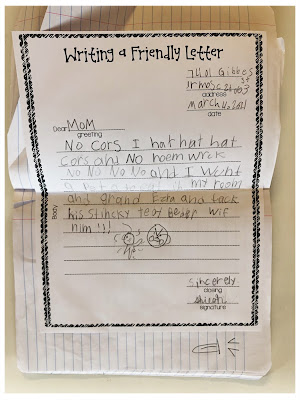 Writing a Friendly Letter
7401 Gibbes
st
address
March 4, 2021
date
Dear MOM
greeting
No Cors I hat hat hat
Cors and No hoem wrck
No No No No and I Want
my room
and grand Ezra and tack
his stincky tedy
him!!!
Body
sincerely
closing
signature